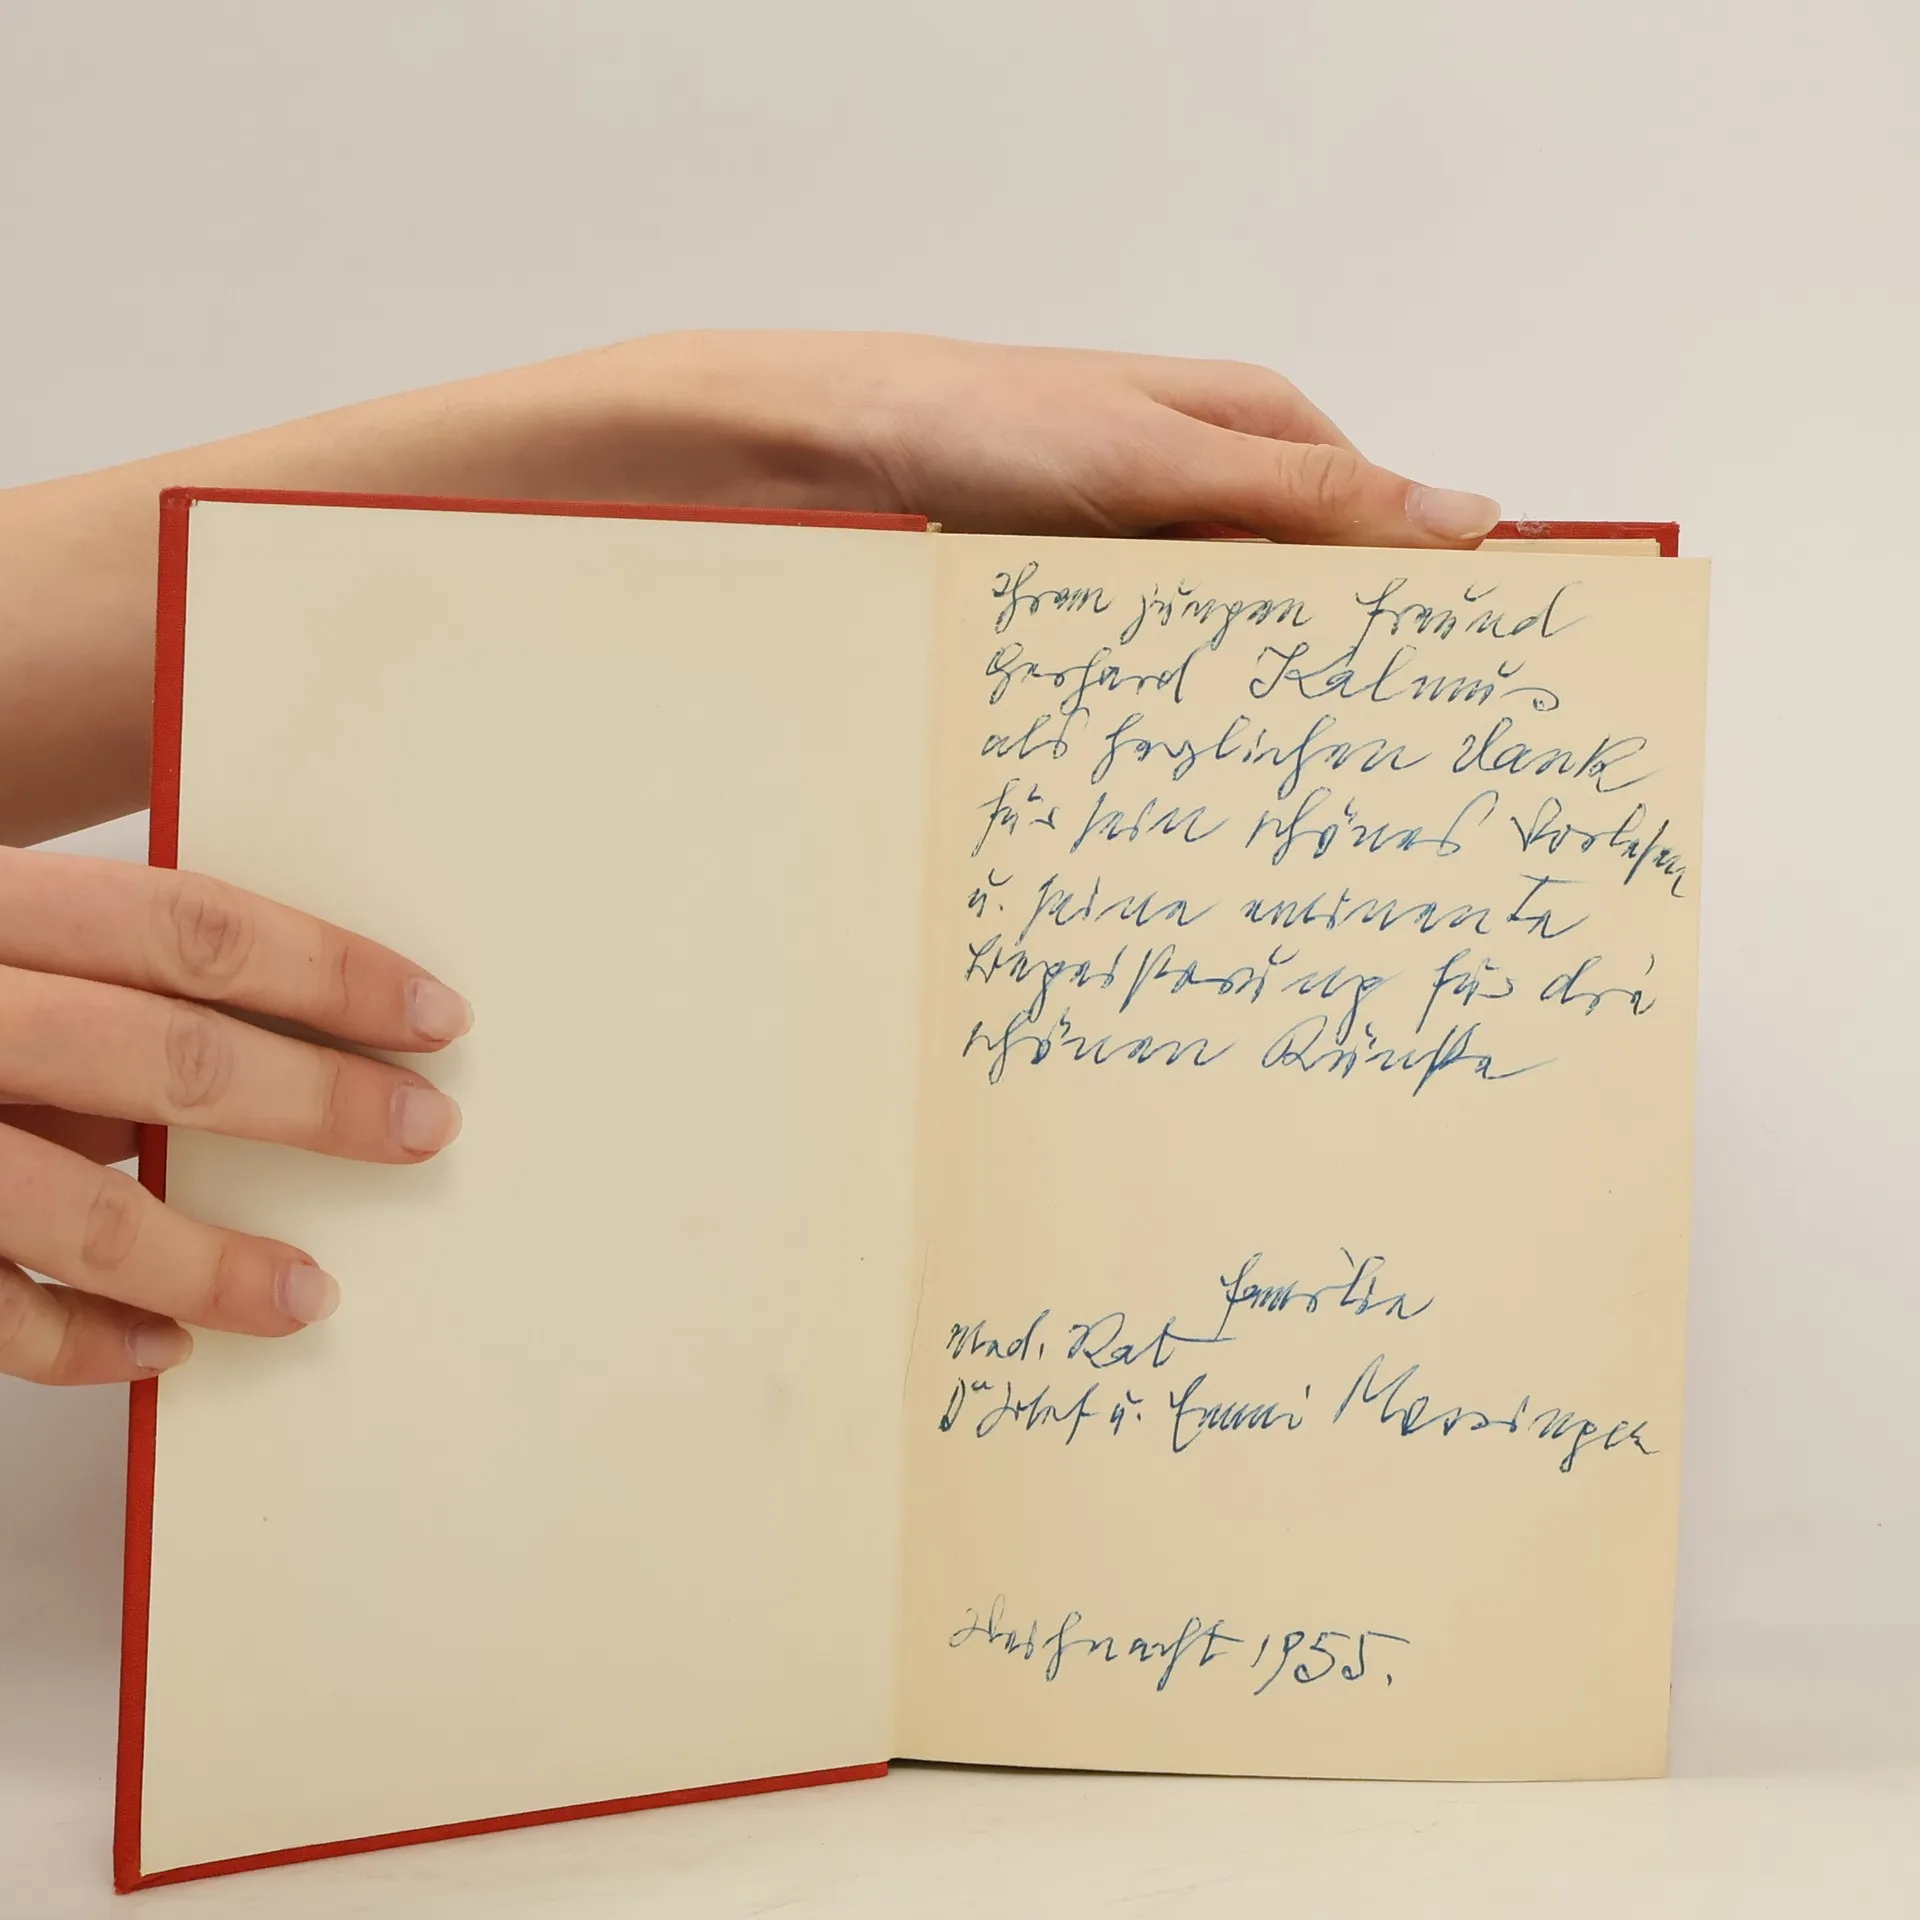 Ihrem jungen Freund
Gerhard Kalmus
als herzlichen Dank
für sein schönes Vorlesen
u. seine eminente
Begeisterung für die
schönen Künste
Familie
Med. Rat
Dr Josef u. Emmi Morsinger
Weihnacht 1955.